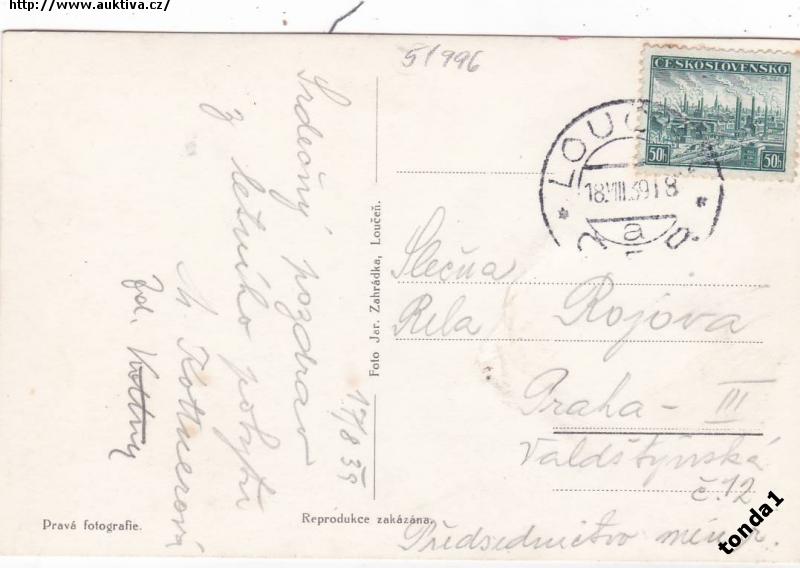 http://www.auktiva.cz/
5/996
ČESKOSLOVENSKO
50h
50h
LOUČ
18.VIII.39 18
a
Srdečný pozdrav
z letního pobytu
M. Kottnerová
zd. Kottny
17/8 39
Foto Jar. Zahrádka, Loučeň.
Slečna
Rela Rojová
Praha - III
Valdštýnská
č. 12
Předsednictvo minist.
Pravá fotografie.
Reprodukce zakázána.
tonda1